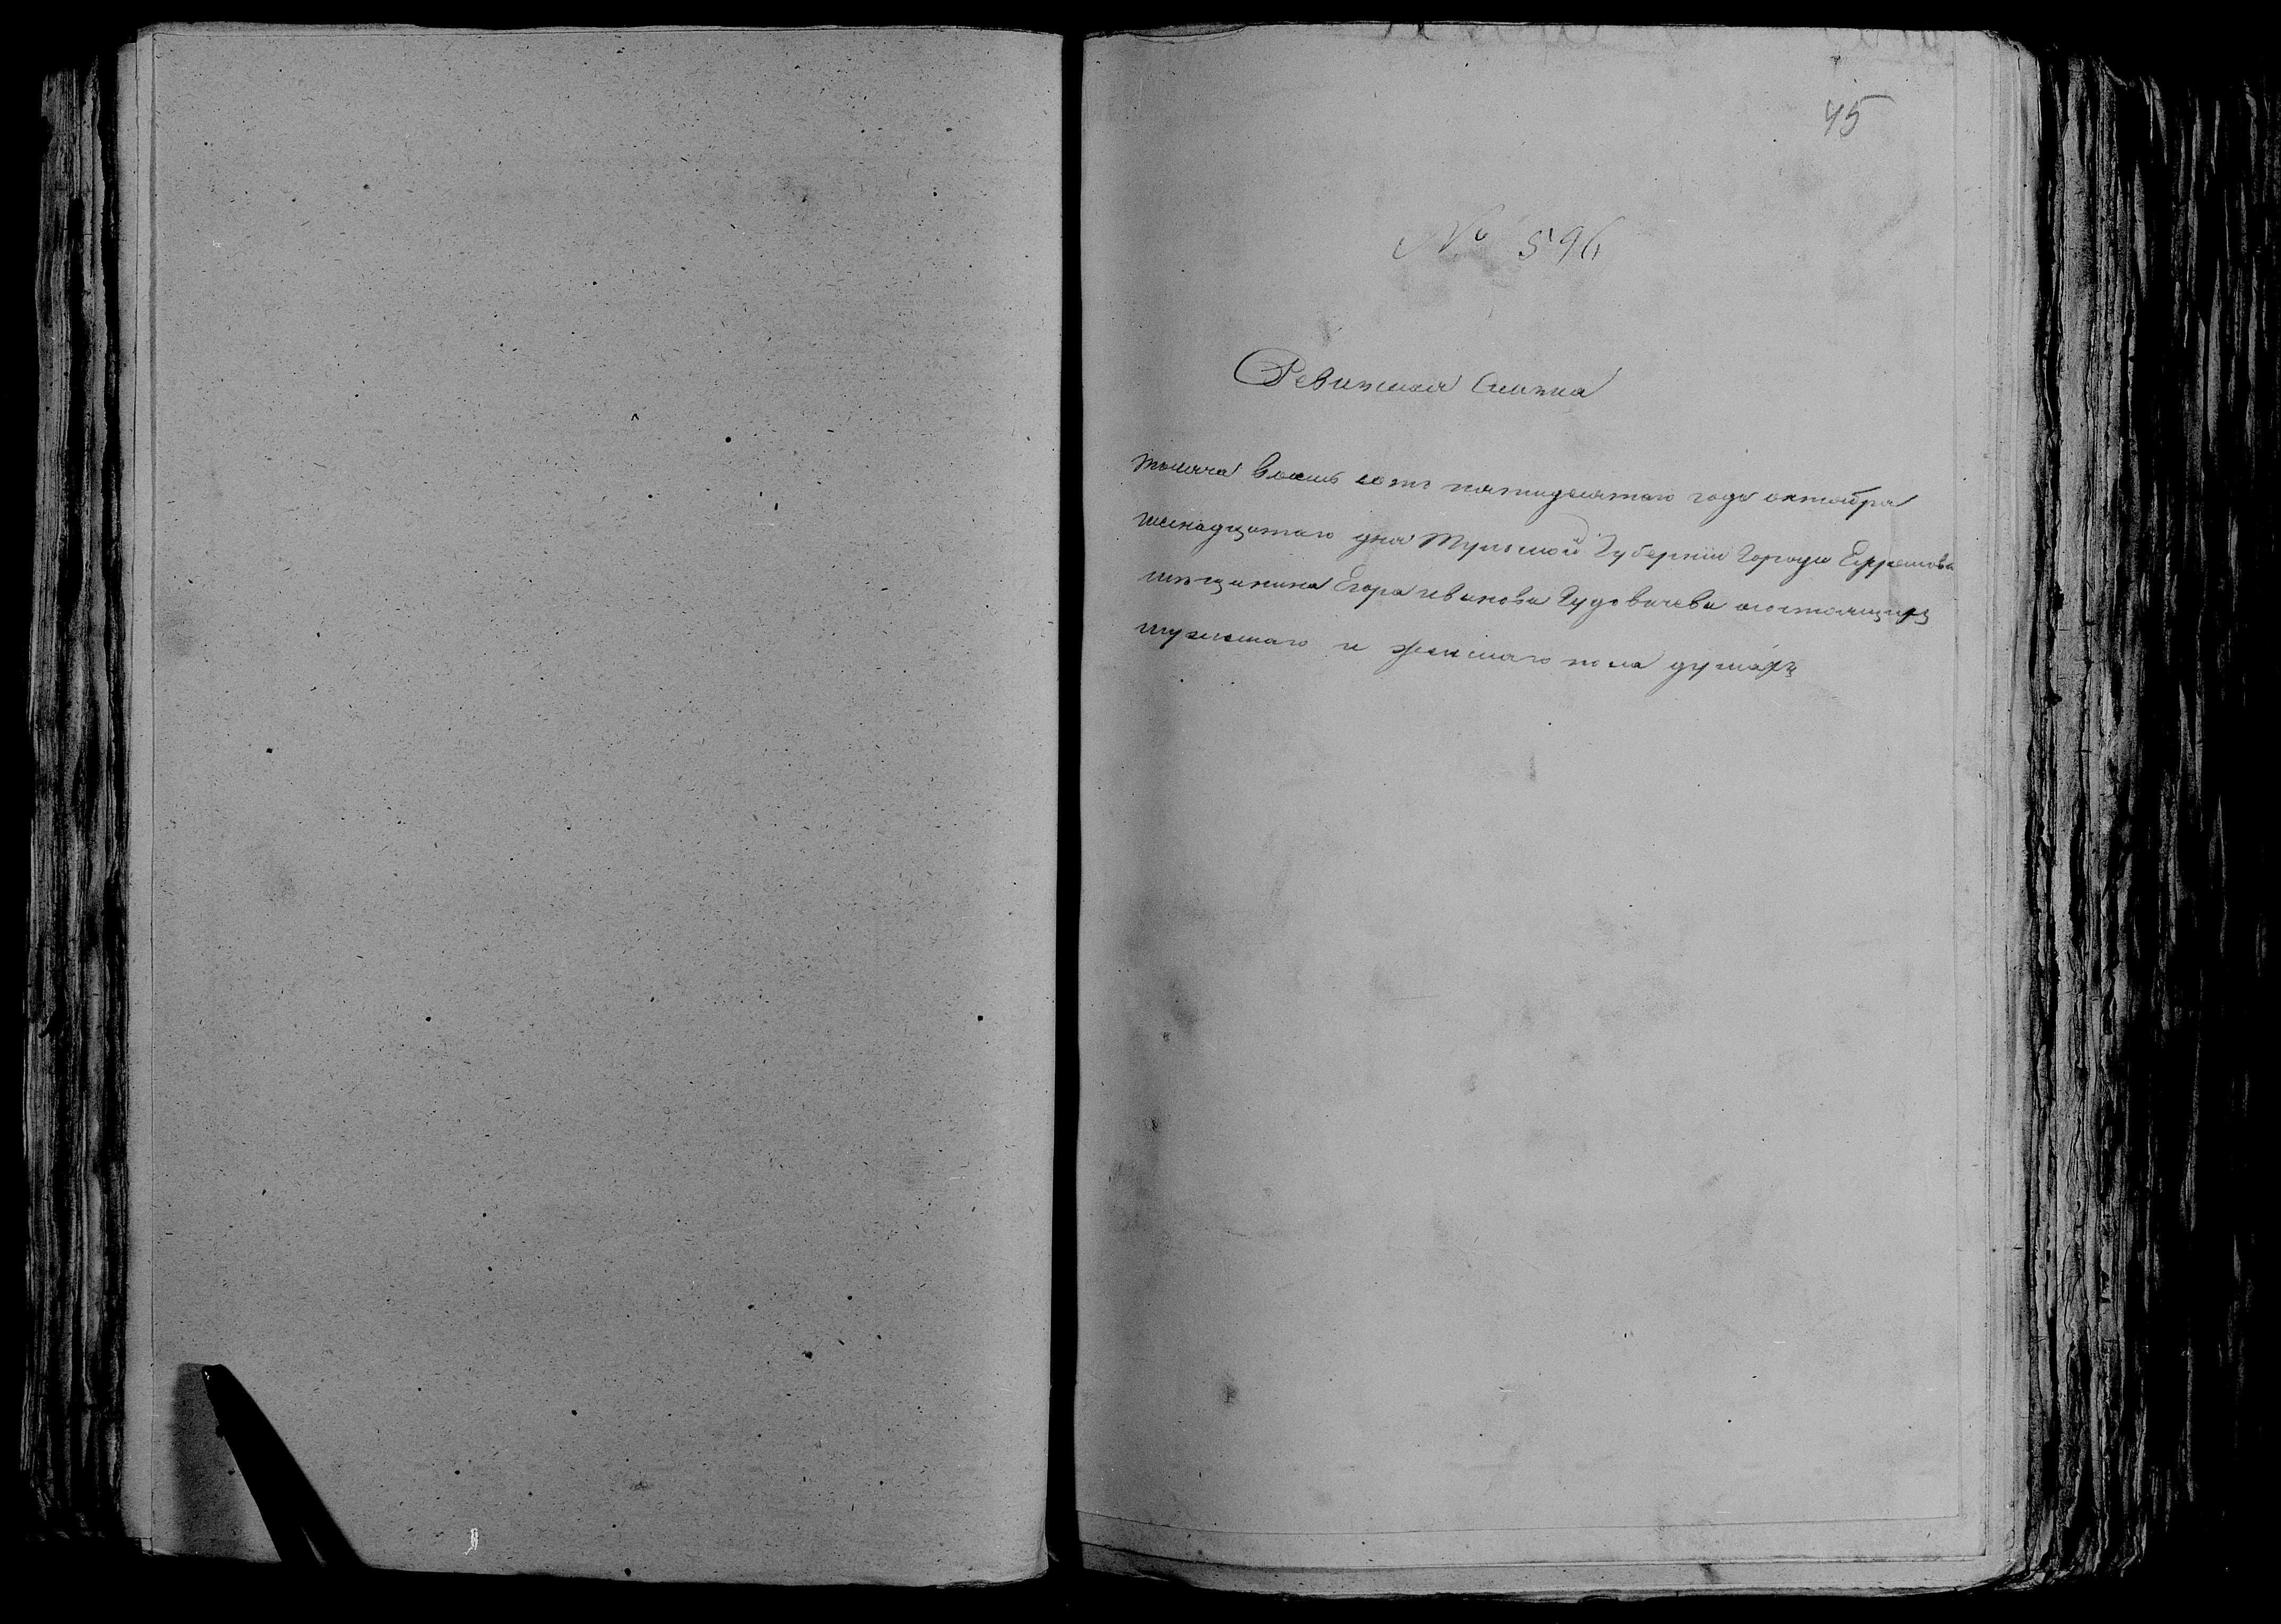 45
№ 594
Ревизская Сказка
тысяча восемь сотъ пятидесятаго года октября
дня Тульской Губернии Города Ефремова
мещанина Егора иванова о состоящихъ
мужескаго и женскаго пола душахъ